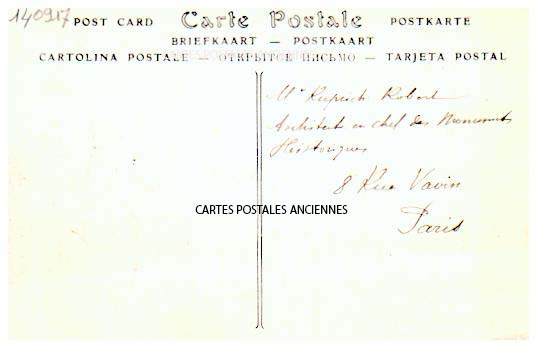 140917
POST CARD Carte Postale POSTKARTE
BRIEFKAART — POSTKAART
CARTOLINA POSTALE — ОТКРЫТОЕ ПИСЬМО — TARJETA POSTAL
Mr Ruprich Robert
Architecte en chef des Monuments
Historiques
8 Rue Vavin
Paris
CARTES POSTALES ANCIENNES